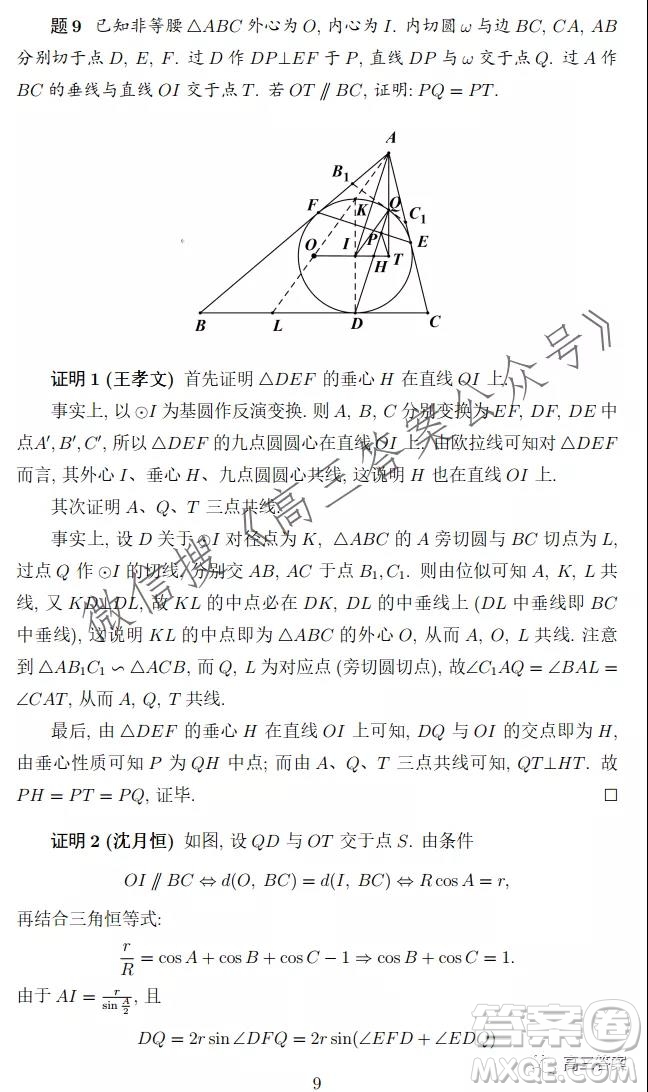 题 9 已知非等腰 △ABC 外心为 O, 内心为 I. 内切圆 ω 与边 BC, CA, AB
分别切于点 D, E, F. 过 D 作 DP⊥EF 于 P, 直线 DP 与 ω 交于点 Q. 过 A 作
BC 的垂线与直线 OI 交于点 T. 若 OT ∥ BC, 证明: PQ = PT.
A
B₁
Q
F
K
C₁
P
E
O
I
H
T
B
L
D
C
证明 1 (王孝文) 首先证明 △DEF 的垂心 H 在直线 OI 上.
事实上, 以 ⊙I 为基圆作反演变换. 则 A, B, C 分别变换为 EF, DF, DE 中
点A′, B′, C′, 所以 △DEF 的九点圆圆心在直线 OI 上. 由欧拉线可知对 △DEF
而言, 其外心 I、垂心 H、九点圆圆心共线, 这说明 H 也在直线 OI 上.
其次证明 A、Q、T 三点共线.
事实上, 设 D 关于 ⊙I 对径点为 K, △ABC 的 A 旁切圆与 BC 切点为 L,
过点 Q 作 ⊙I 的切线, 分别交 AB, AC 于点 B₁, C₁. 则由位似可知 A, K, L 共
线, 又 KD⊥DL, 故 KL 的中点必在 DK, DL 的中垂线上 (DL 中垂线即 BC
中垂线), 这说明 KL 的中点即为 △ABC 的外心 O, 从而 A, O, L 共线. 注意
到 △AB₁C₁ ∽ △ACB, 而 Q, L 为对应点 (旁切圆切点), 故∠C₁AQ = ∠BAL =
∠CAT, 从而 A, Q, T 共线.
最后, 由 △DEF 的垂心 H 在直线 OI 上可知, DQ 与 OI 的交点即为 H,
由垂心性质可知 P 为 QH 中点; 而由 A、Q、T 三点共线可知, QT⊥HT. 故
PH = PT = PQ, 证毕. □
证明 2 (沈月恒) 如图, 设 QD 与 OT 交于点 S. 由条件
OI ∥ BC ⇔ d(O, BC) = d(I, BC) ⇔ R cos A = r,
再结合三角恒等式:
r/R = cos A + cos B + cos C − 1 ⇒ cos B + cos C = 1.
由于 AI = r/sin A/2, 且
DQ = 2r sin ∠DFQ = 2r sin(∠EFD + ∠EDQ)
9
微信搜《高三答案公众号》
答案卷
高三答案